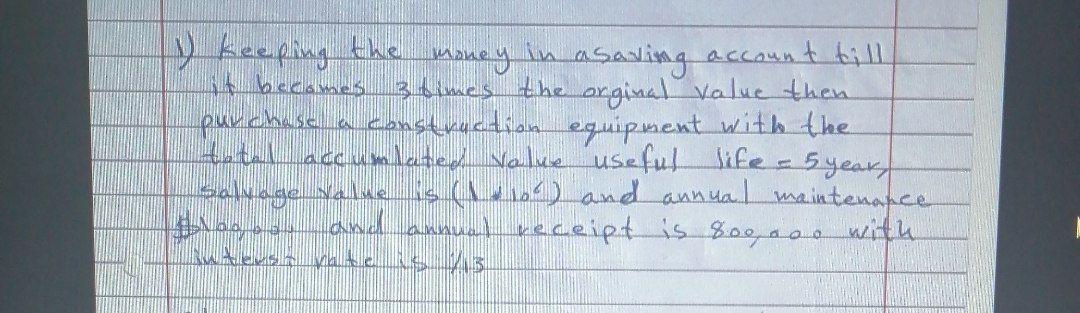 1) keeping the money in a saving account till
it becomes 3 times the orginal value then
purchase a construction equipment with the
total accumlated value useful life = 5 year,
salvage value is (1*10⁶) and annual maintenance
and annual receipt is 800,000 with
interst rate is %13